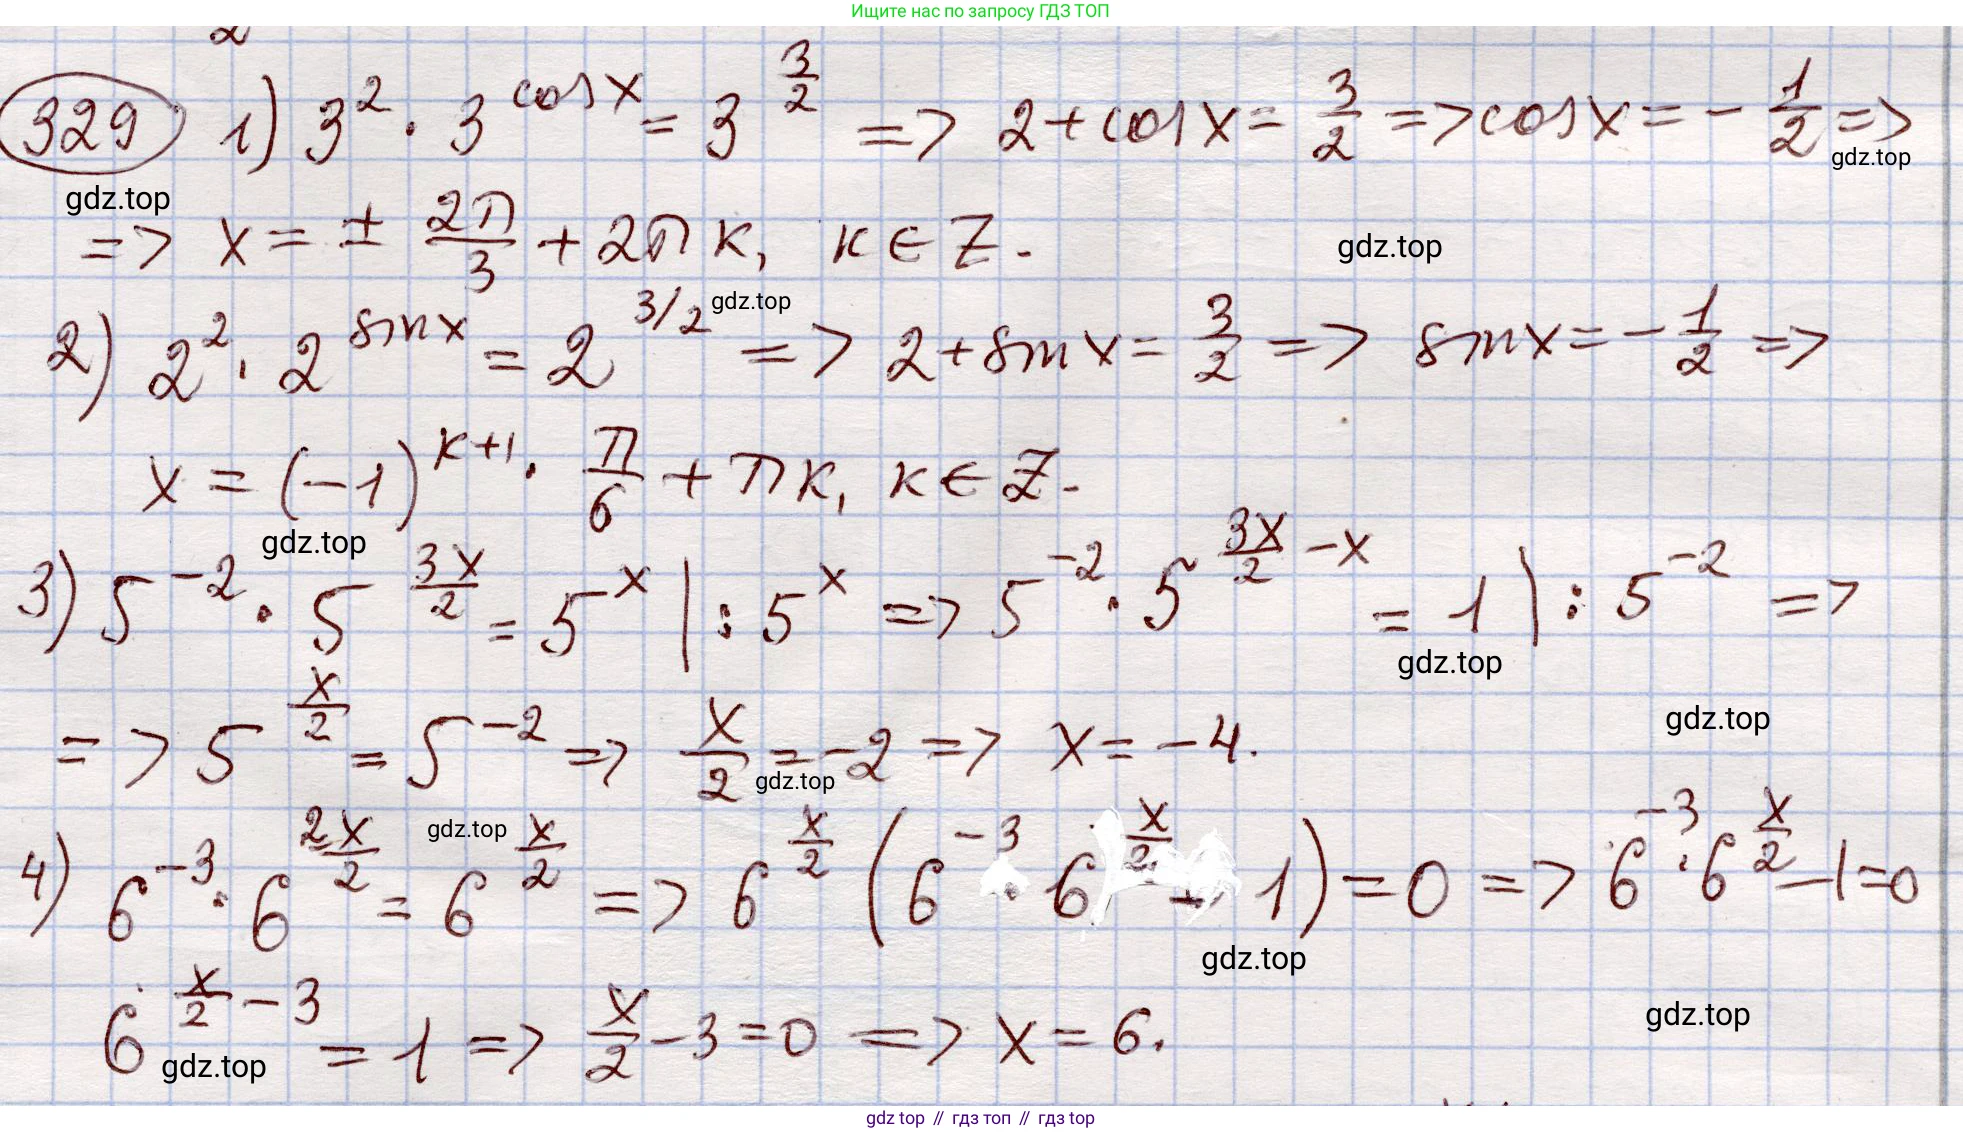 Ищите нас по запросу ГДЗ ТОП
329 1) 3² · 3^(cos x) = 3^(3/2) => 2 + cos x = 3/2 => cos x = - 1/2 =>
gdz.top
gdz.top
=> x = ± 2π/3 + 2πk, k ∈ Z.
gdz.top
2) 2² · 2^(sin x) = 2^(3/2) => 2 + sin x = 3/2 => sin x = - 1/2 =>
gdz.top
x = (-1)^(k+1) · π/6 + πk, k ∈ Z.
gdz.top
3) 5^(-2) · 5^(3x/2) = 5^x | : 5^x => 5^(-2) · 5^(3x/2 - x) = 1 | : 5^(-2) =>
gdz.top
gdz.top
=> 5^(x/2) = 5^(-2) => x/2 = -2 => x = -4.
gdz.top
gdz.top
4) 6^(-3) · 6^(2x/2) = 6^(x/2) => 6^(x/2) (6^(-3) · 6^(x/2) - 1) = 0 => 6^(-3) · 6^(x/2) - 1 = 0
gdz.top
gdz.top
6^(x/2 - 3) = 1 => x/2 - 3 = 0 => x = 6.
gdz.top
gdz top // гдз топ // гдз top